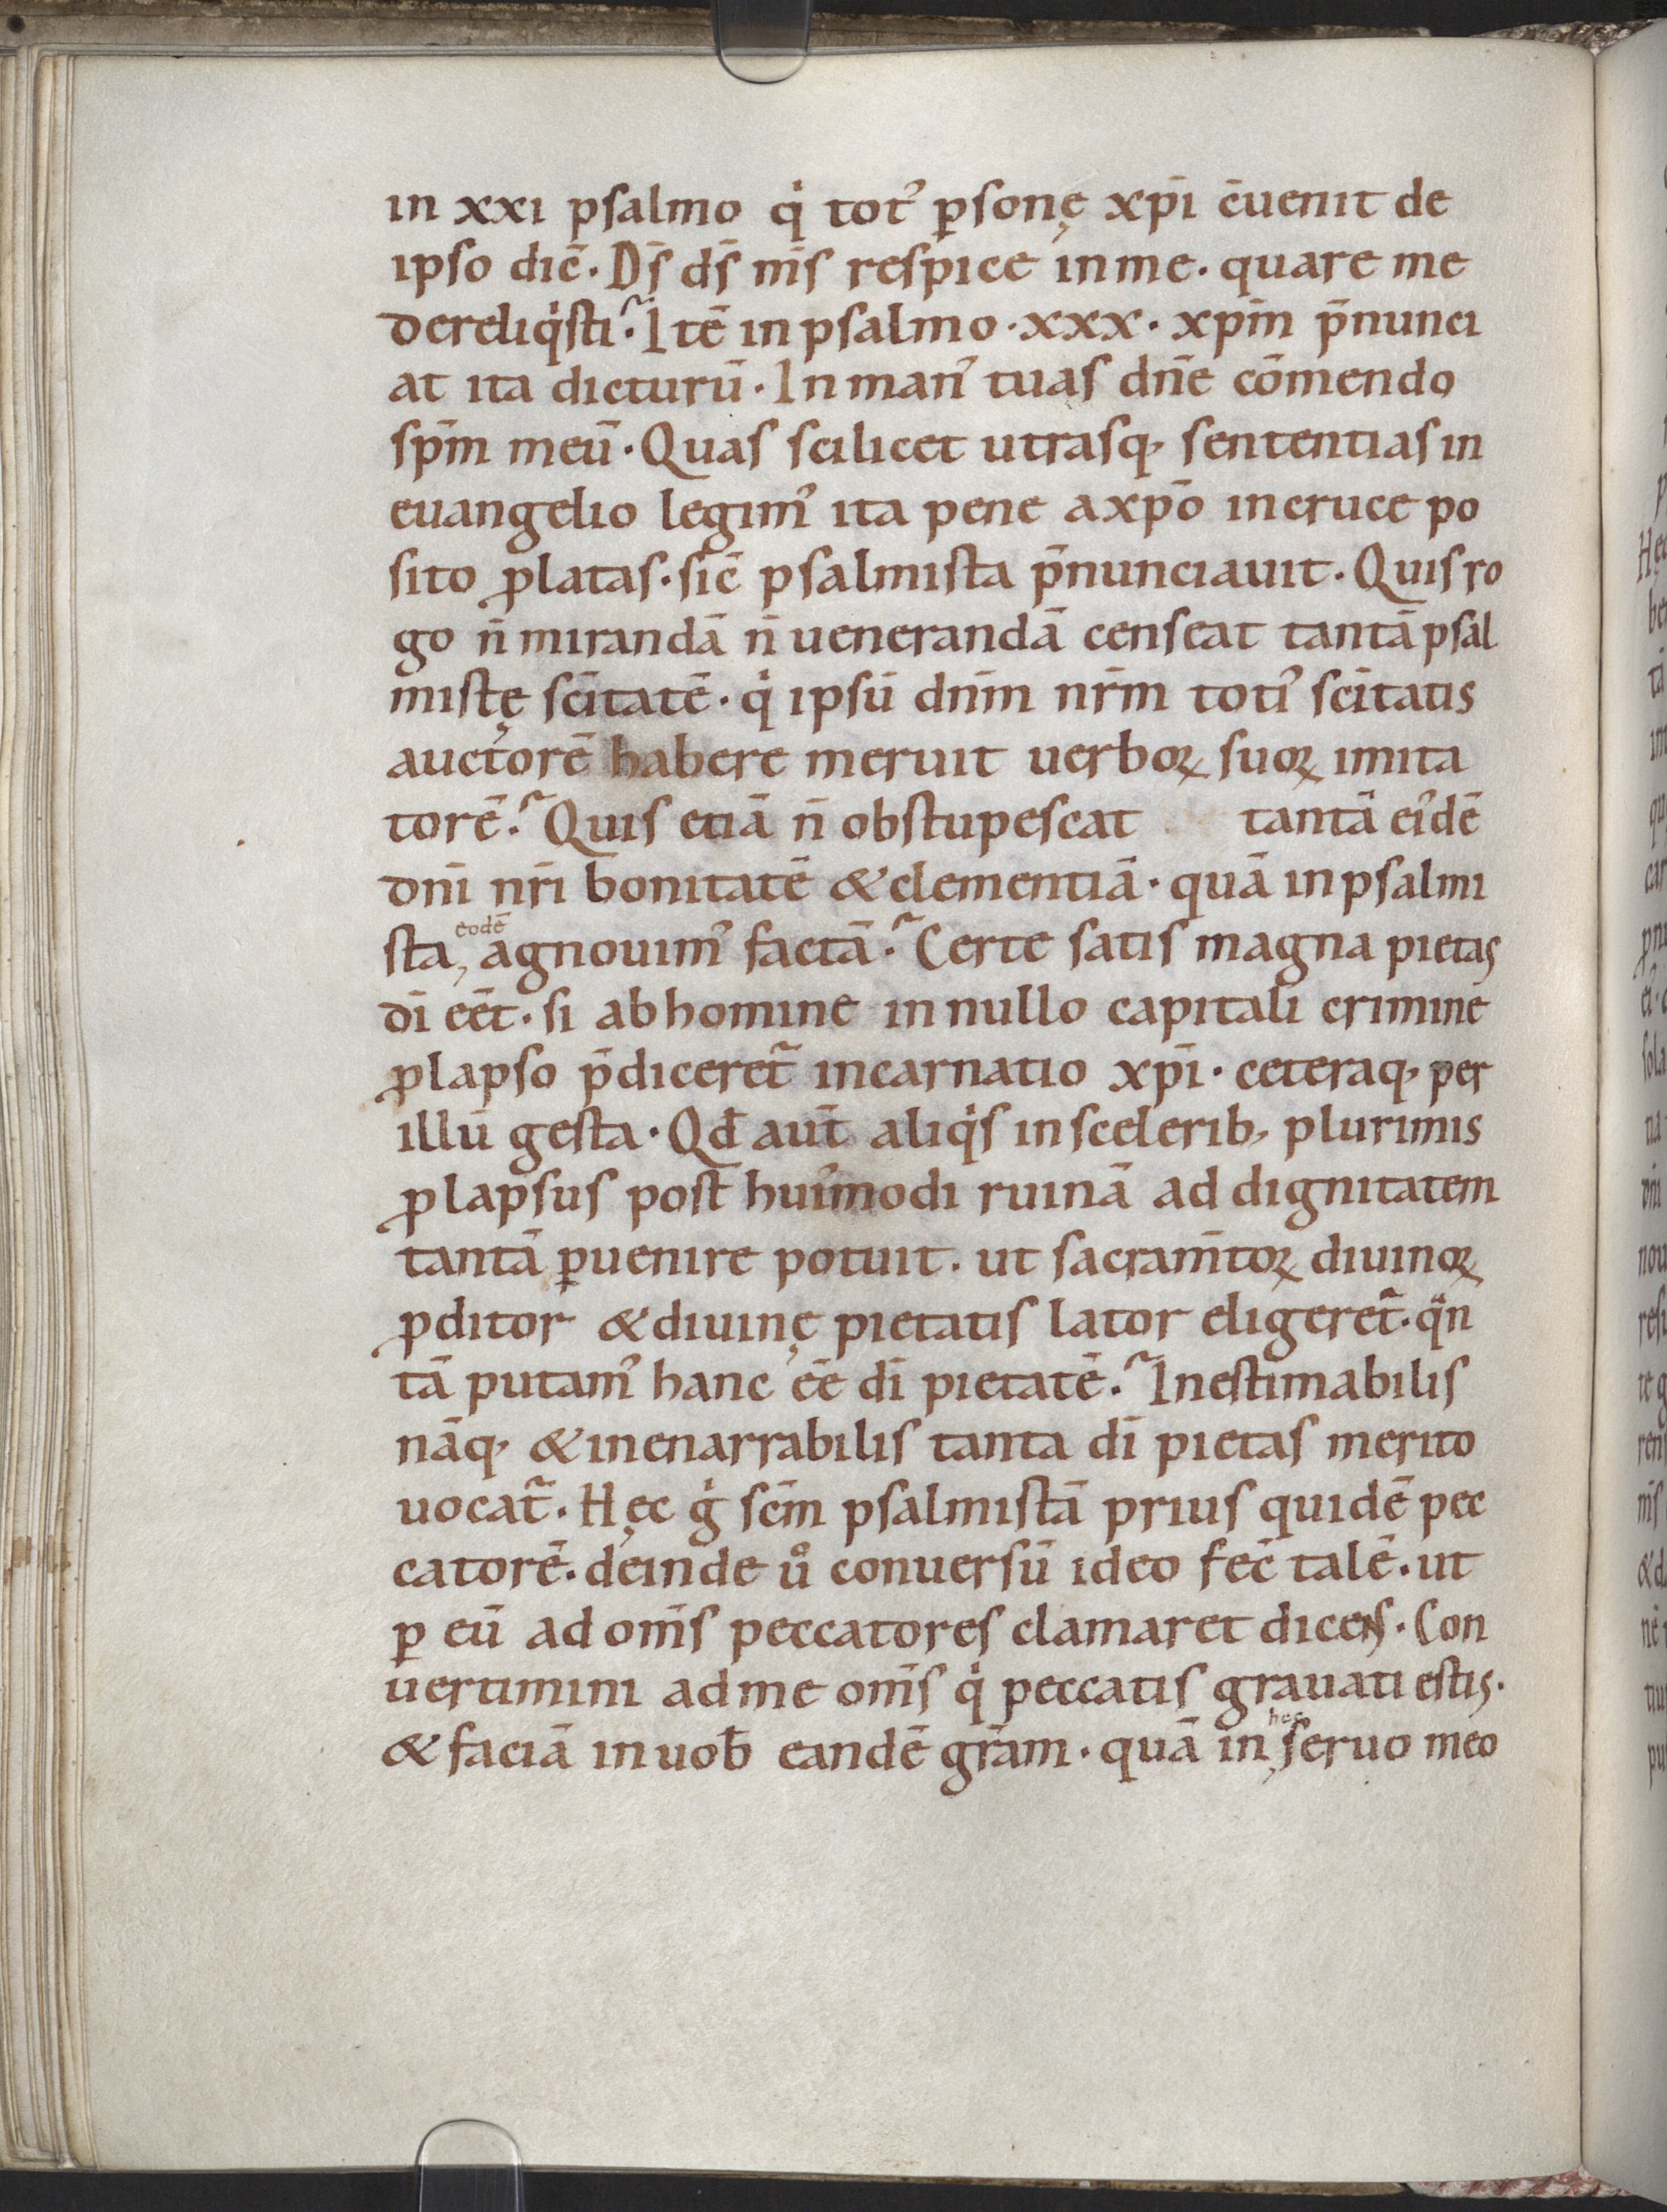 in xxi psalmo qͥ tot᾽ ꝑsonę xp̄i c̄uenit de
ipso dic̄. Ds̄ ds̄ ms̄ respice in me. quare me
dereliqͥsti? Itē in psalmo. xxx. xp̄m p̄nunci
at ita dicturū. In man᾽ tuas dn̄e cōmendo
sp̄m meū. Quas scilicet utrasq; sententias in
euangelio legim᾽ ita pene a xp̄o in cruce po
sito ꝓlatas. sic̄ psalmista p̄nunciauit. Quis ro
go n̄ mirandā n̄ uenerandā censeat tantā psal
mistę sc̄itatē. qͥ ipsū dn̄m nr̄m toti᾽ sc̄itatis
auctorē habere meruit uerboꝝ suoꝝ imita
torē? Quis etiā n̄ obstupescat tantā ei᾽dē
dn̄i nr̄i bonitatē & clementiā. quā in psalmi
sta, eodē agnouim᾽ factā? Certe satis magna pietas
dī eēt. si ab homine in nullo capitali crimine
ꝓlapso p̄diceret̃ incarnatio xp̄i. ceteraq; per
illū gesta. Qđ aut̄ aliqͥs in scelerib; plurimis
ꝓlapsus post hui᾽modi ruinā ad dignitatem
tantā ꝑuenire potuit. ut sacram̄toꝝ diuinoꝝ
ꝓditor & diuinę pietatis lator eligeret̃. qͣn
tā putam᾽ hanc eē dī pietatē? Inestimabilis
nāq; & inenarrabilis tanta dī pietas merito
uocat̃. Hęc gͥ sc̄m psalmistā prius quidē pec
catorē. deinde uͦ conuersū ideo fec̄ talē. ut
ꝑ eū ad om̄s peccatores clamaret dicens. Con
uertimini ad me om̄s qͥ peccatis grauati estis.
& faciā in uob̄ eandē gr̄am. quā in, hoc seruo meo